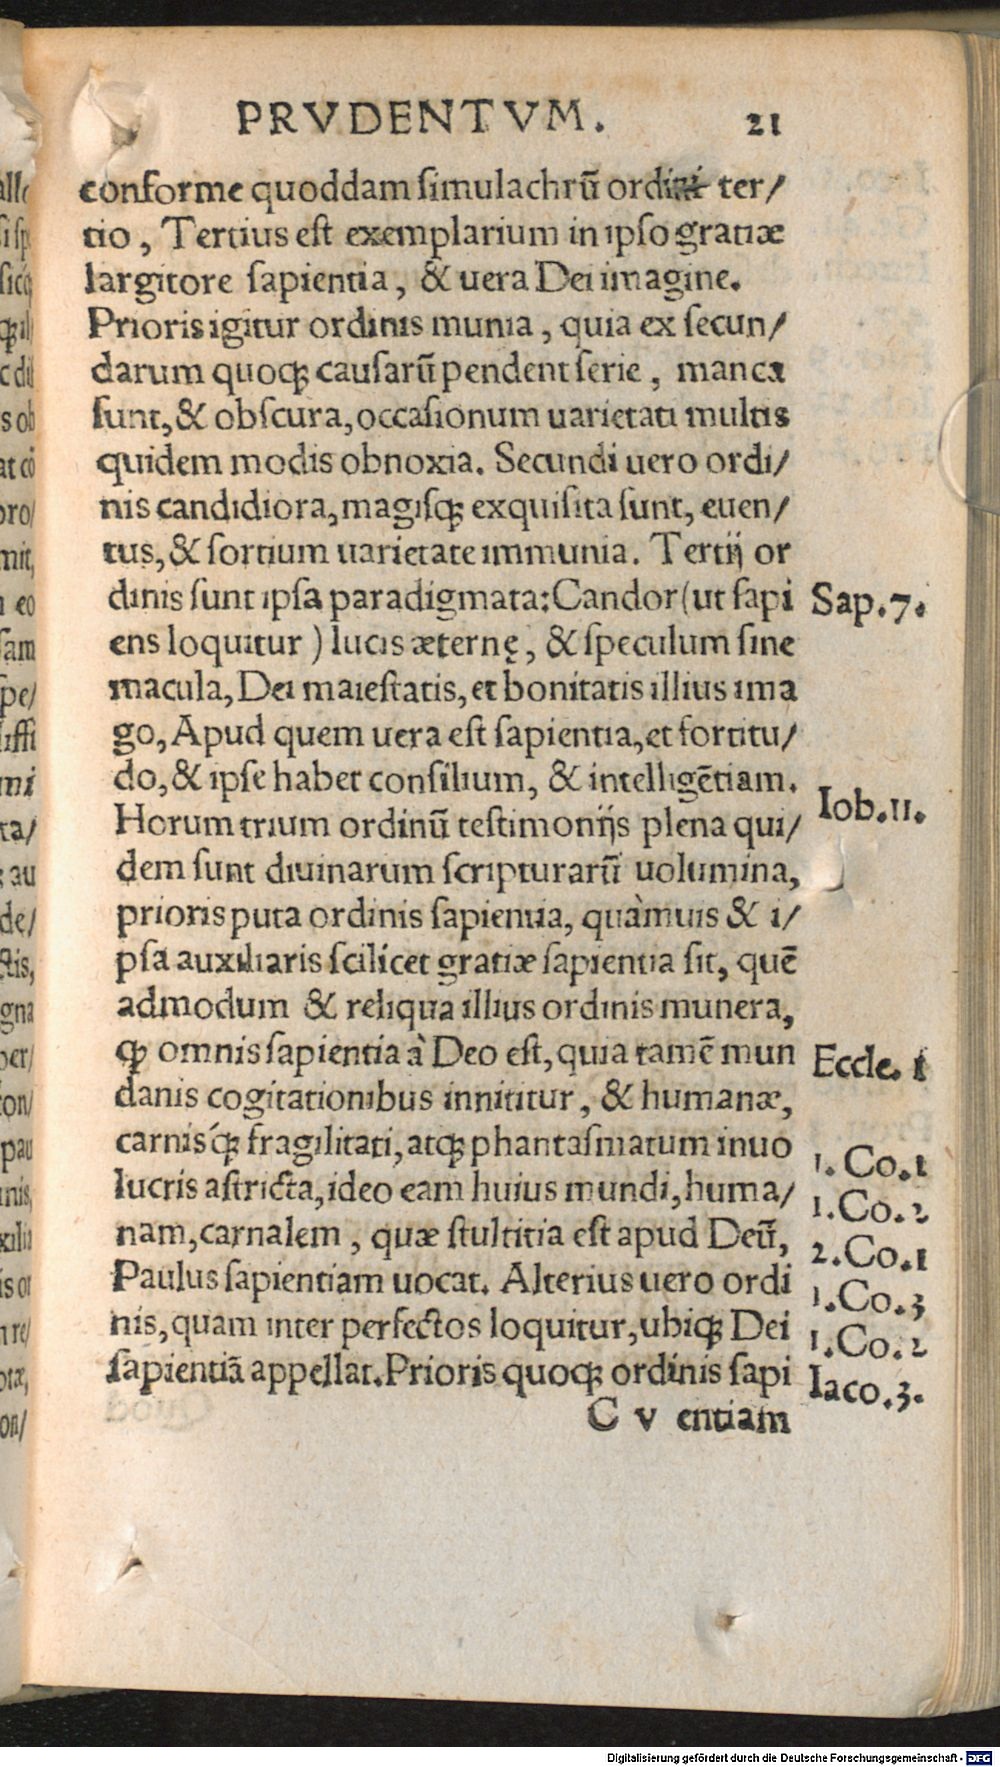 PRVDENTVM. 21
conforme quoddam simulachrũ ordini ter/
tio, Tertius est exemplarium in ipso gratiæ
largitore sapientia, & uera Dei imagine.
Prioris igitur ordinis munia, quia ex secun/
darum quoqꝫ causarũ pendent serie, manca
sunt, & obscura, occasionum uarietati multis
quidem modis obnoxia. Secundi uero ordi/
nis candidiora, magisqꝫ exquisita sunt, euen/
tus, & sortium uarietate immunia. Tertij or
dinis sunt ipsa paradigmata: Candor (ut sapi Sap.7.
ens loquitur) lucis æternę, & speculum sine
macula, Dei maiestatis, et bonitatis illius ima
go, Apud quem uera est sapientia, et fortitu/
do, & ipse habet consilium, & intelligẽtiam.
Horum trium ordinũ testimonijs plena qui/ Iob.11.
dem sunt diuinarum scripturarũ uolumina,
prioris puta ordinis sapientia, quàmuis & i/
psa auxiliaris scilicet gratiæ sapientia sit, quẽ
admodum & reliqua illius ordinis munera,
qꝫ omnis sapientia à Deo est, quia tamẽ mun Eccle. 1
danis cogitationibus innititur, & humanæ,
carnisq́ꝫ fragilitati, atqꝫ phantasmatum inuo 1.Co.1
lucris astricta, ideo eam huius mundi, huma/ 1.Co.2
nam, carnalem, quæ stultitia est apud Deũ, 2.Co.1
Paulus sapientiam uocat. Alterius uero ordi 1.Co.3
nis, quam inter perfectos loquitur, ubiqꝫ Dei 1.Co.2
sapientiã appellat. Prioris quoqꝫ ordinis sapi Iaco.3.
C v entiam
Digitalisierung gefördert durch die Deutsche Forschungsgemeinschaft - DFG